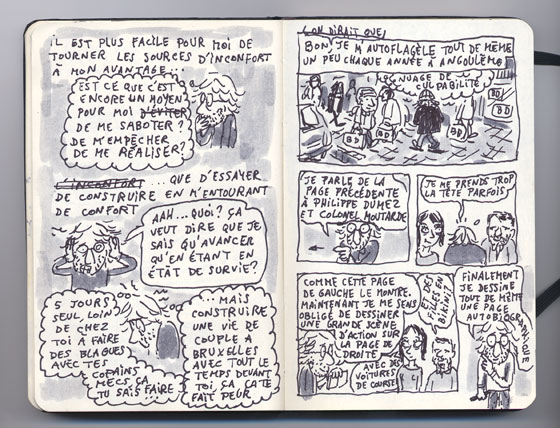 IL EST PLUS FACILE POUR MOI DE
TOURNER LES SOURCES D'INCONFORT
À MON AVANTAGE...
EST CE QUE C'EST
ENCORE UN MOYEN
POUR MOI D'ÉVITER
DE ME SABOTER ?
DE M'EMPÊCHER
DE ME RÉALISER ?
L'INCONFORT ...QUE D'ESSAYER
DE CONSTRUIRE EN M'ENTOURANT
DE CONFORT
AAH... QUOI ? ÇA
VEUT DIRE QUE JE
SAIS QU'AVANCER
QU'EN ÉTANT EN
ÉTAT DE SURVIE ?
5 JOURS
SEUL, LOIN
DE CHEZ
TOI À FAIRE
DES BLAGUES
AVEC TES
COPAINS
MECS, ÇA
TU SAIS FAIRE
...MAIS
CONSTRUIRE
UNE VIE DE
COUPLE À
BRUXELLES
AVEC TOUT LE
TEMPS DEVANT
TOI, ÇA ÇA TE
FAIT PEUR
(ON DIRAIT QUE)
BON, JE M'AUTOFLAGÈLE TOUT DE MÊME
UN PEU CHAQUE ANNÉE À ANGOULÊME
NUAGE DE
CULPABILITÉ
BD
BD
BD
BD
BD
JE PARLE DE LA
PAGE PRÉCÉDENTE
À PHILIPPE DUMEZ
ET COLONEL MOUTARDE
JE ME PRENDS TROP
LA TÊTE PARFOIS
COMME CETTE PAGE
DE GAUCHE LE MONTRE.
MAINTENANT JE ME SENS
OBLIGÉ DE DESSINER
UNE GRANDE SCÈNE
D'ACTION SUR
LA PAGE DE
DROITE
ET DES
FILLES EN
BIKINI !
AVEC DES
VOITURES
DE COURSE !
FINALEMENT
JE DESSINE
TOUT DE MÊME
UNE PAGE
AUTOBIOGRAPHIQUE